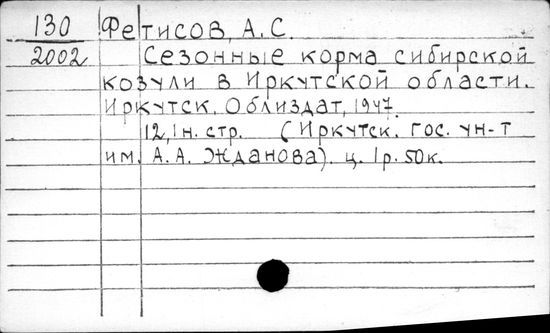 130 Фетисов, А. С.
2002 Сезонные корма сибирской
козули в Иркутской области.
Иркутск. Облиздат, 1947.
12, 1н. стр. (Иркутск. гос. ун-т
им. А. А. Жданова). ц. 1р. 50к.